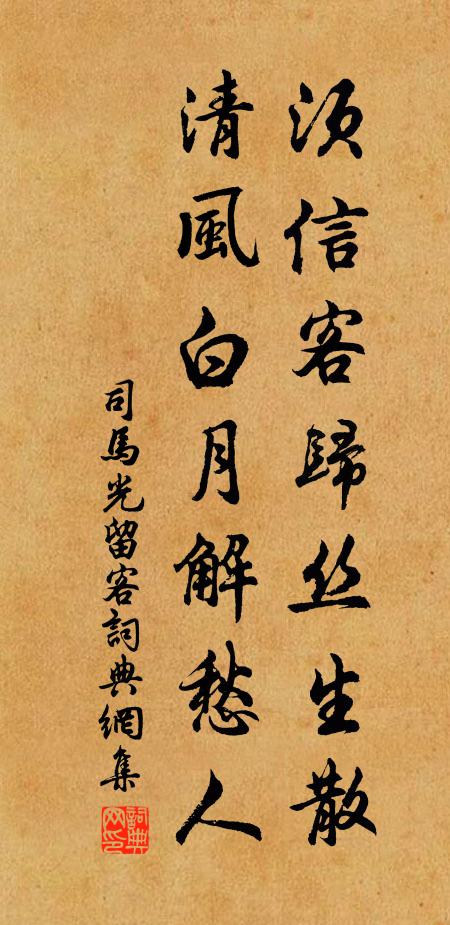 须信客歸丝生散
清風白月解愁人
司馬光留客詞典網集
詞典网印